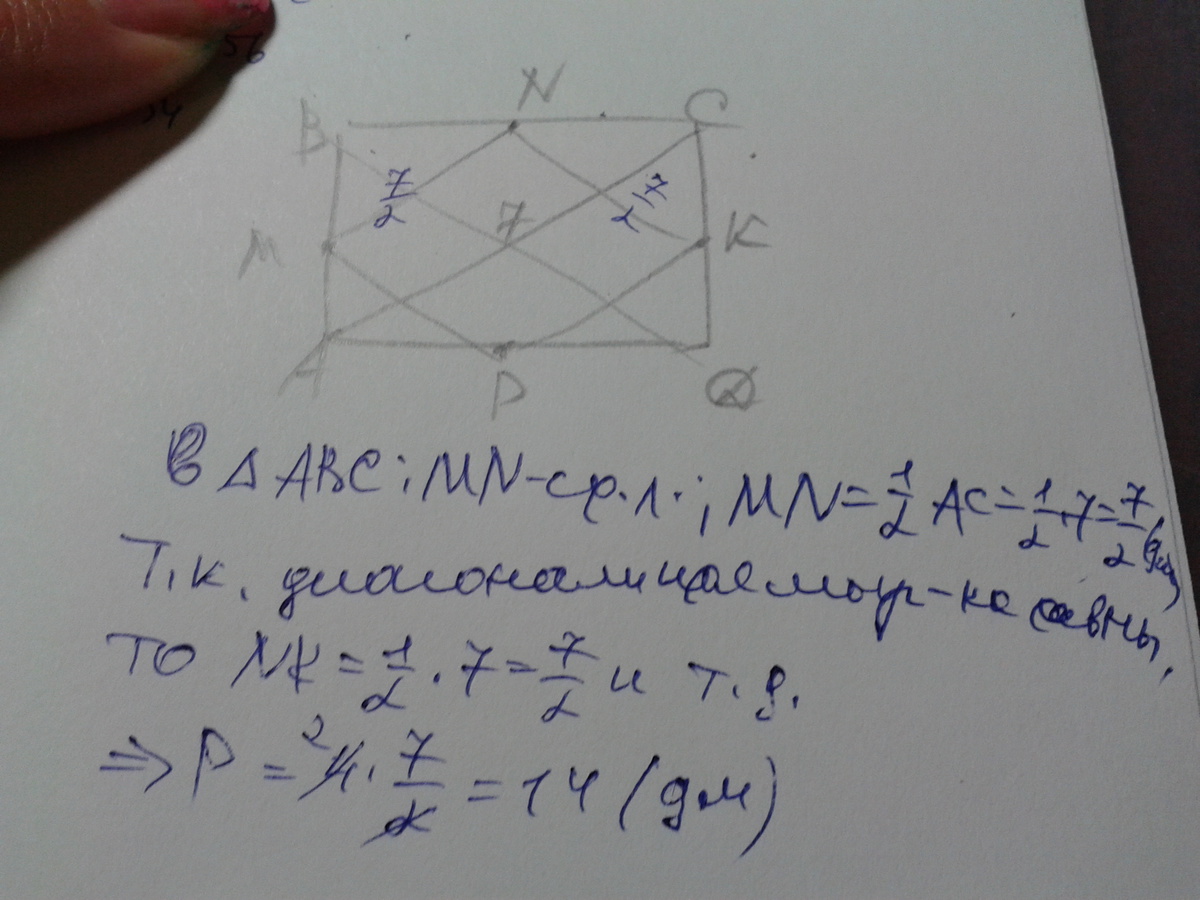 56
34
B N C
7/2 7 7/2
M K
A P D
В △ ABC: MN-ср.л.; MN=1/2 AC=1/2·7=7/2 (дм)
Т.к. диагонали прямоуг-ка равны,
то NK=1/2·7=7/2 и т.д.
⇒ P = 4·7/2 = 14 (дм)